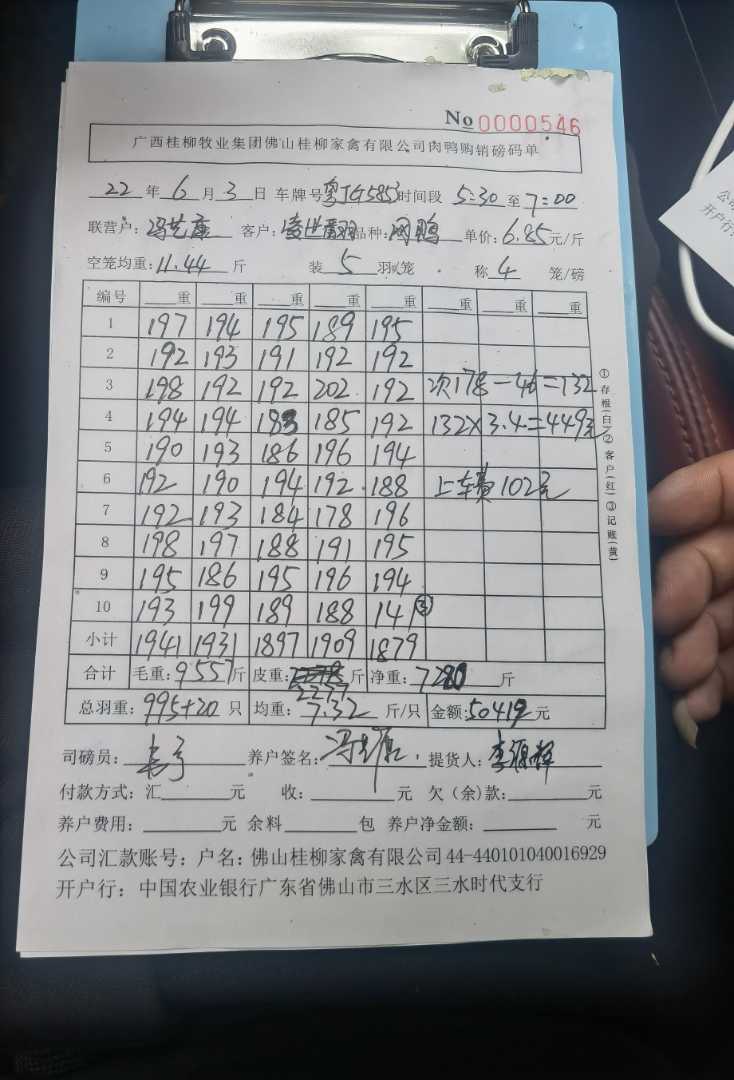 No 0000546
广西桂柳牧业集团佛山桂柳家禽有限公司肉鸭购销磅码单
22年6月3日 车牌号粤JG585 时间段 5:30至7:00
联营户:冯艺康 客户: 品种: 鸭 单价:6.85元/斤
空笼均重:11.44斤 装5羽/笼 称4笼/磅
编号 重 重 重 重 重 重 重 重
1 197 194 195 189 195
2 192 193 191 192 192
3 198 192 192 202 192 次178-46=132
4 194 194 183 185 192 132×3.4=449元
5 190 193 186 196 194
6 192 190 194 192 188 上车费102元
7 192 193 184 178 196
8 198 197 188 191 195
9 195 186 195 196 194
10 193 199 189 188 141 ③
小计 1941 1931 1897 1909 1879
合计 毛重:9557斤 皮重:2277斤 净重:7280斤
总羽重:995+20只 均重:7.32斤/只 金额:50419元
司磅员: 养户签名:冯艺康 提货人:李
付款方式:汇 元 收: 元 欠(余)款: 元
养户费用: 元 余料 包 养户净金额: 元
公司汇款账号:户名:佛山桂柳家禽有限公司44-440101040016929
开户行:中国农业银行广东省佛山市三水区三水时代支行
①存根(白)②客户(红)③记账(黄)
公司
开户行: